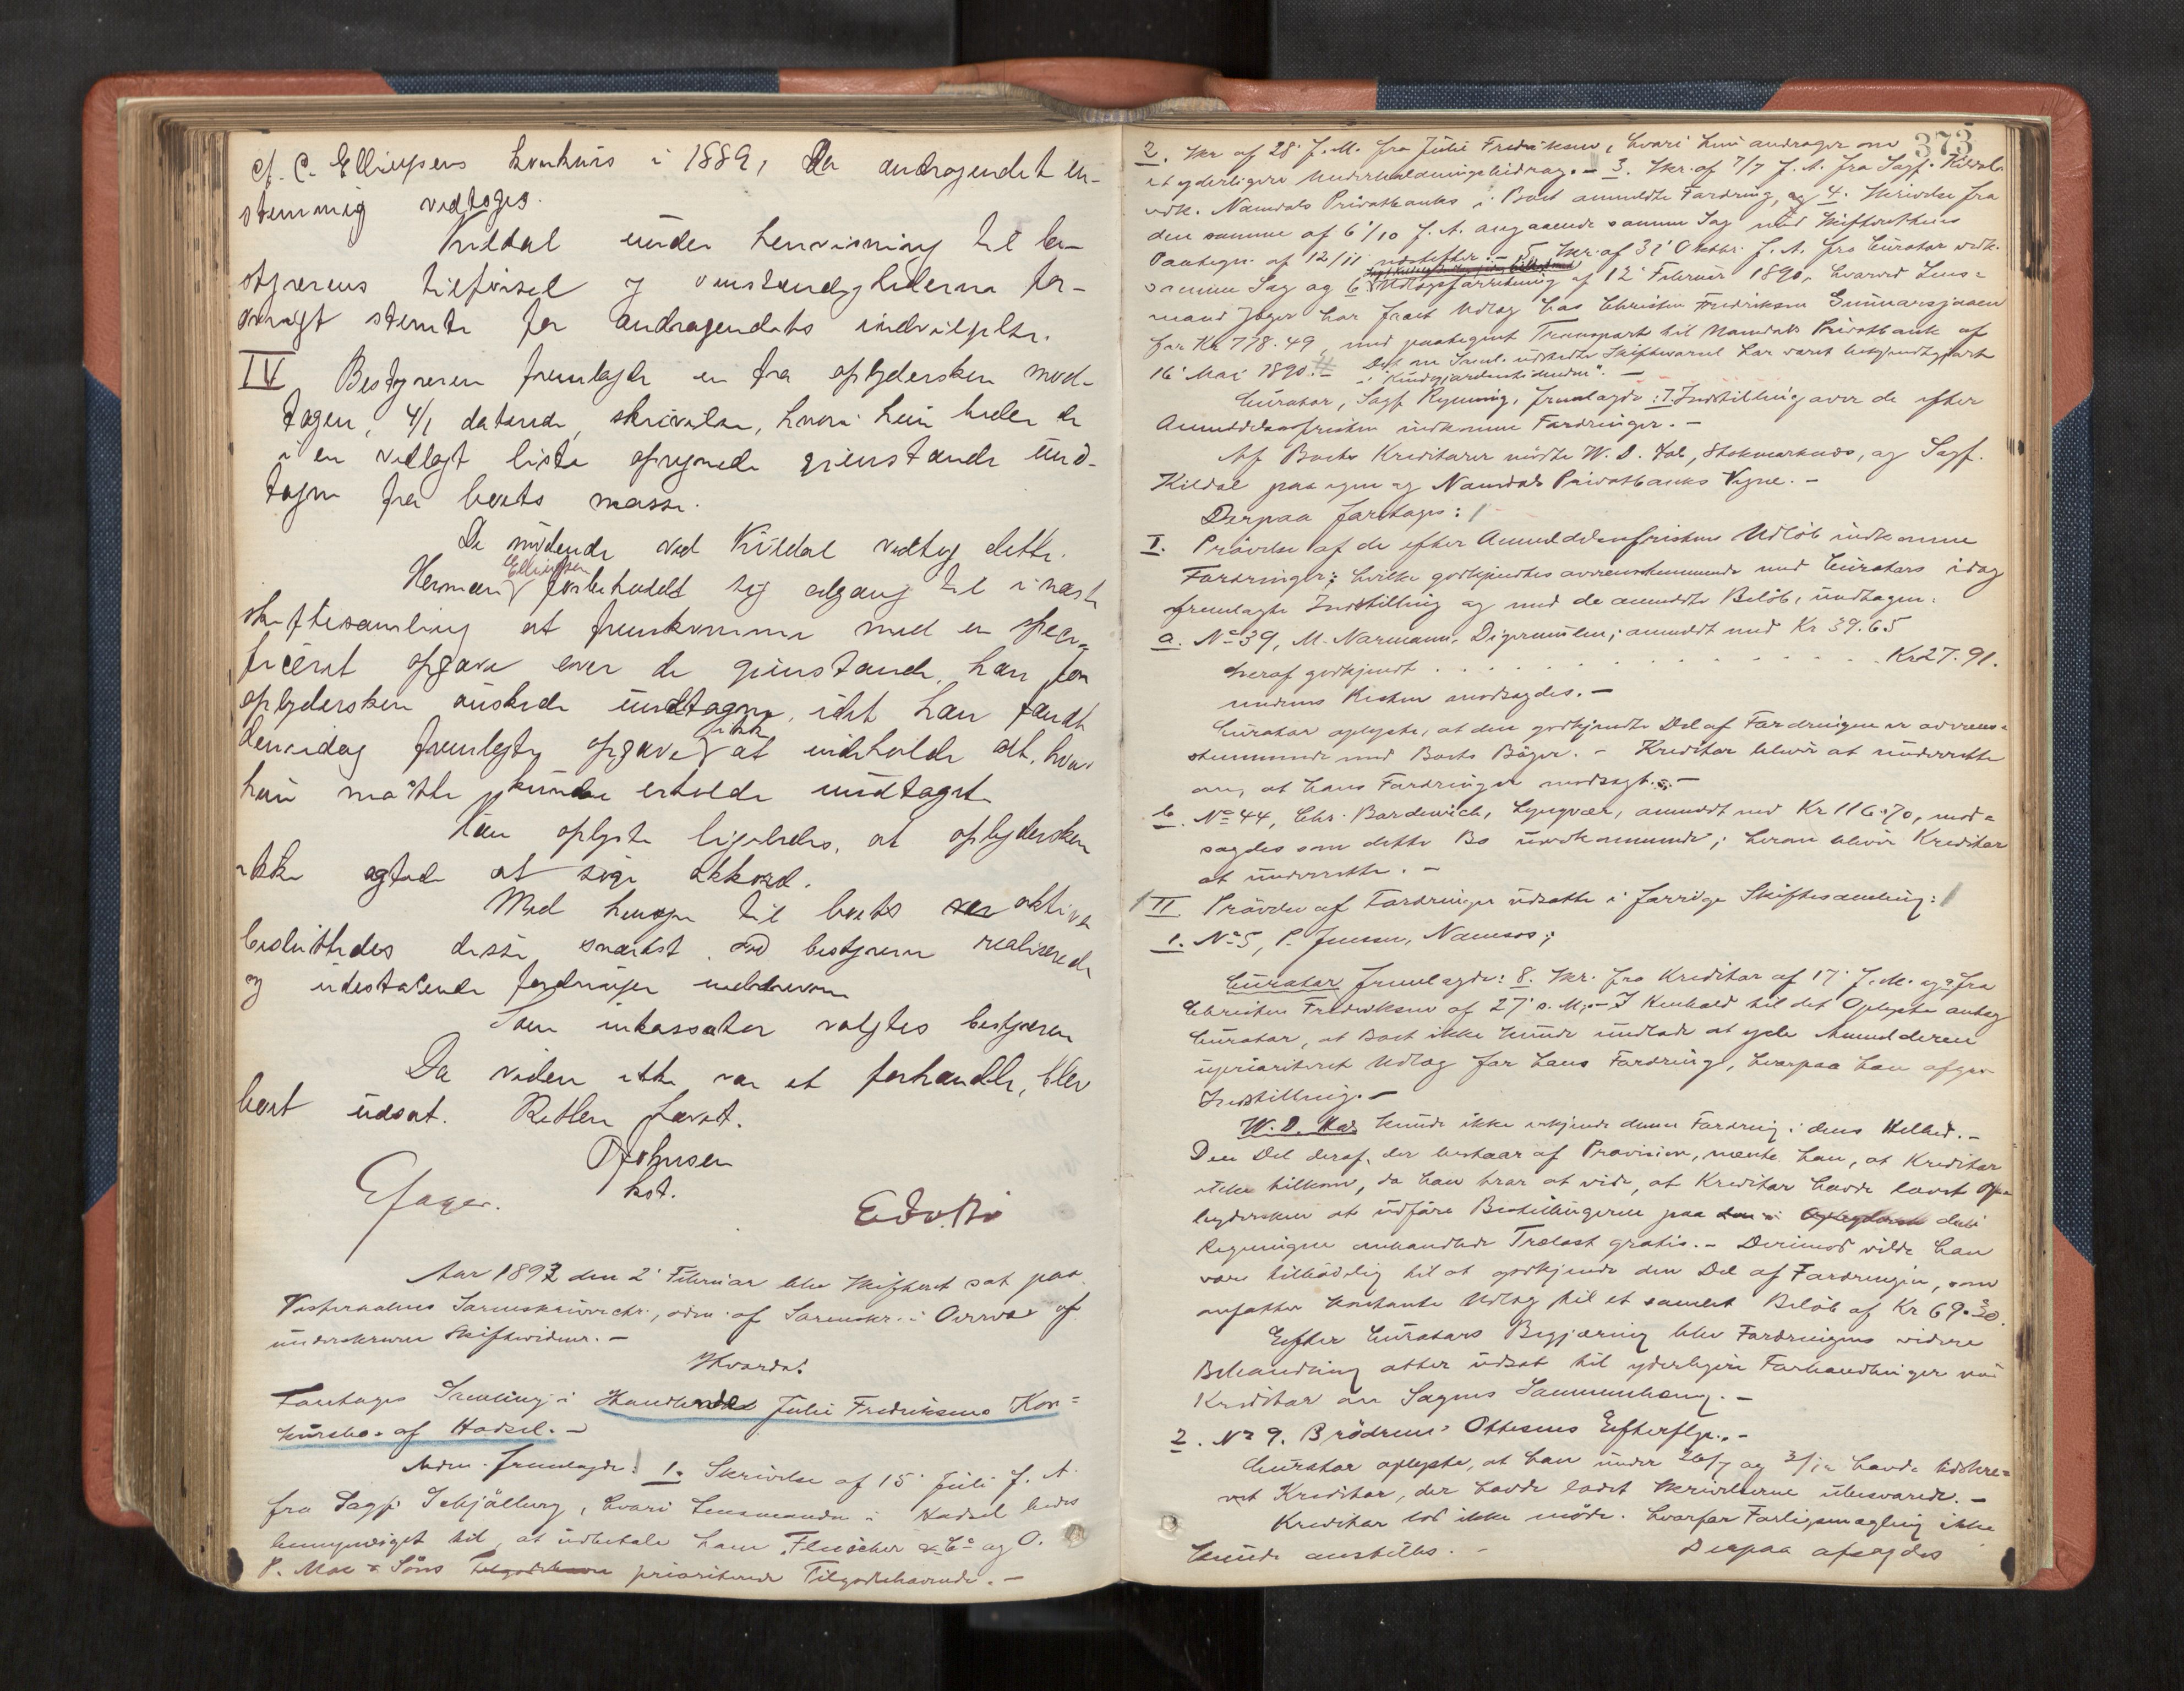 cf. C. Ellingsens konkurs i 1889, da andragendet en-
stemmig vedtoges.
Kildal under henvisning til be-
styrerens tilførsel og omstændighederne for-
øvrigt stemte for andragendets indvilgelse.
IV Bestyreren fremlagde en fra opbydersken mod-
tagen, 4/1 daterede, skrivelse, hvori hun beder de
i en vedlagt liste opregnede gjenstande und-
tagne fra boets masse.
De mødende ved Kildal vedtog dette.
Herman Ellingsen forbeholdt sig adgang til i næste
skiftesamling at fremkomme med en speci-
ficeret opgave over de gjenstande, han for
opbydersken ønskede undtagne, idet han fandt
den idag fremlagte opgave ikke at indeholde alt, hvad
hun måtte kunde erholde undtaget.
Han oplyste ligeledes, at opbydersken
ikke agtede at søge akkord.
Med hensyn til boets aktiva
besluttedes disse snarest ved bestyreren realiserede
og udestående fordringer inddrevne
Som inkassator valgtes bestyreren
Da videre ikke var at forhandle, blev
boet udsat. Retten hævet.
Johnsen
kst.
EJager.
Aar 1892 den 2' Februar blev Skifteret sat paa
Vesteraalens Sorenskriverkt., adm. af Sorenskr. i Overvær af
underskrevne Skiftevidner. -
Hvorda:
Foretoges Samling i Handlende Julie Fredriksens Kon=
kursbo af Hadsel. -
Adm. fremlagde: 1. Skrivelse af 15' Juli f. A.
fra Sagf. Schjølberg, hvori Lensmanden i Hadsel bedes
bemyndiget til at udbetale ham Fleischer & Co og O.
P. Moe & Søns prioriterede Tilgodehavende. -
373
2. Skr af 28' f. M. fra Julie Fredriksen, hvori hun andrager om
et yderligere Underholdningsbidrag. - 3. Skr. af 7/7 f. A. fra Sagf. Kildal
vedk. Namdals Privatbanks i Boet anmeldte Fordring, og 4. Skrivelse fra
den samme af 6'/10 f. A. angaaende samme Sag med Skifterettens
Paategn. af 12/11 næstefter. - 5. Skr. af 31' Oktbr. f. A. fra Curator vedk.
samme Sag og 6. Udlægsforretning af 12' Februar 1890, hvorved Lens=
mand Jager har gjort Udlæg hos Christen Fredriksen Gunnarsjaaen
for Kr 778.49, med paategnet Transport til Namdals Privatbank af
16' Mai 1890. - Det om Saml. udstedte Skiftevarsel har været bekjendtgjort
i "Kundgjørelsestidende". -
Curator, Sagf. Rynning, fremlagde: 7. Indstilling over de efter
Anmeldelsesfristen indkomne Fordringer. -
Af Boets Kreditorer mødte W. D. Hals, Stokmarknes, og Sagf.
Kildal paa egne og Namdals Privatbanks Vegne. -
Derpaa foretoges:
I. Prøvelse af de efter Anmeldelsesfristens Udløb indkomne
Fordringer; hvilke godkjendtes overensstemmende med Curators idag
fremlagte Indstilling og med de anmeldte Beløb, undtagen:
a. No 39, M. Normann, Digermulen; anmeldt med Kr 39.65
heraf godkjendt . . . . . . . . . . . Kr 27.91.
medens Resten modsagdes. -
Curator oplyste, at den godkjendte Del af Fordringen er overens=
stemmende med Boets Bøger. - Kreditor bliver at underrette
om, at hans Fordring er modsagt. -
b. No 44, Chr. Bordewich, Lyngvær, anmeldt med Kr 116.70, mod=
sagdes som dette Bo uvedkommende; herom bliver Kreditor
at underrette. -
II Prøvelse af Fordringer udsatte i forrige Skiftesamling:
1. No 5, P. Jensen, Namsos;
Curator fremlagde: 8. Skr. fra Kreditor af 17' f. M. og 9 fra
Christen Fredriksen af 27' s. M. - I Henhold til det Oplyste antog
Curator, at Boet ikke kunde undlade at yde Anmelderen
uprioriteret Udlæg for hans Fordring, hvorpaa han afgav
Indstilling. -
W. D. Hals kunde ikke erkjende denne Fordring i dens Helhed. -
Den Del deraf, der bestaar af Provision, mente han, at Kreditor
ikke tilkom, da han tror at vide, at Kreditor havde lovet Op=
bydersken at udføre Bestillingerne paa den i
Regningen omhandlede Trælast gratis. - Derimod vilde han
være tilbøielig til at godkjende den Del af Fordringen, som
omfatter kontante Udlæg til et samlet Beløb af Kr 69.30.
Efter Curators Begjæring blev Fordringens videre
Behandling atter udsat til yderligere Forhandlinger med
Kreditor om Sagens Sammenhæng. -
2. No 9. Brødrene Ottesens Efterflgr. -
Curator oplyste, at han under 26/7 og 3/12 havde tilskre=
vet Kreditor, der havde ladet Skrivelserne ubesvarede. -
Kreditor lod ikke møde. hvorfor Forligsmægling ikke
kunde anstilles. - Derpaa afsagdes